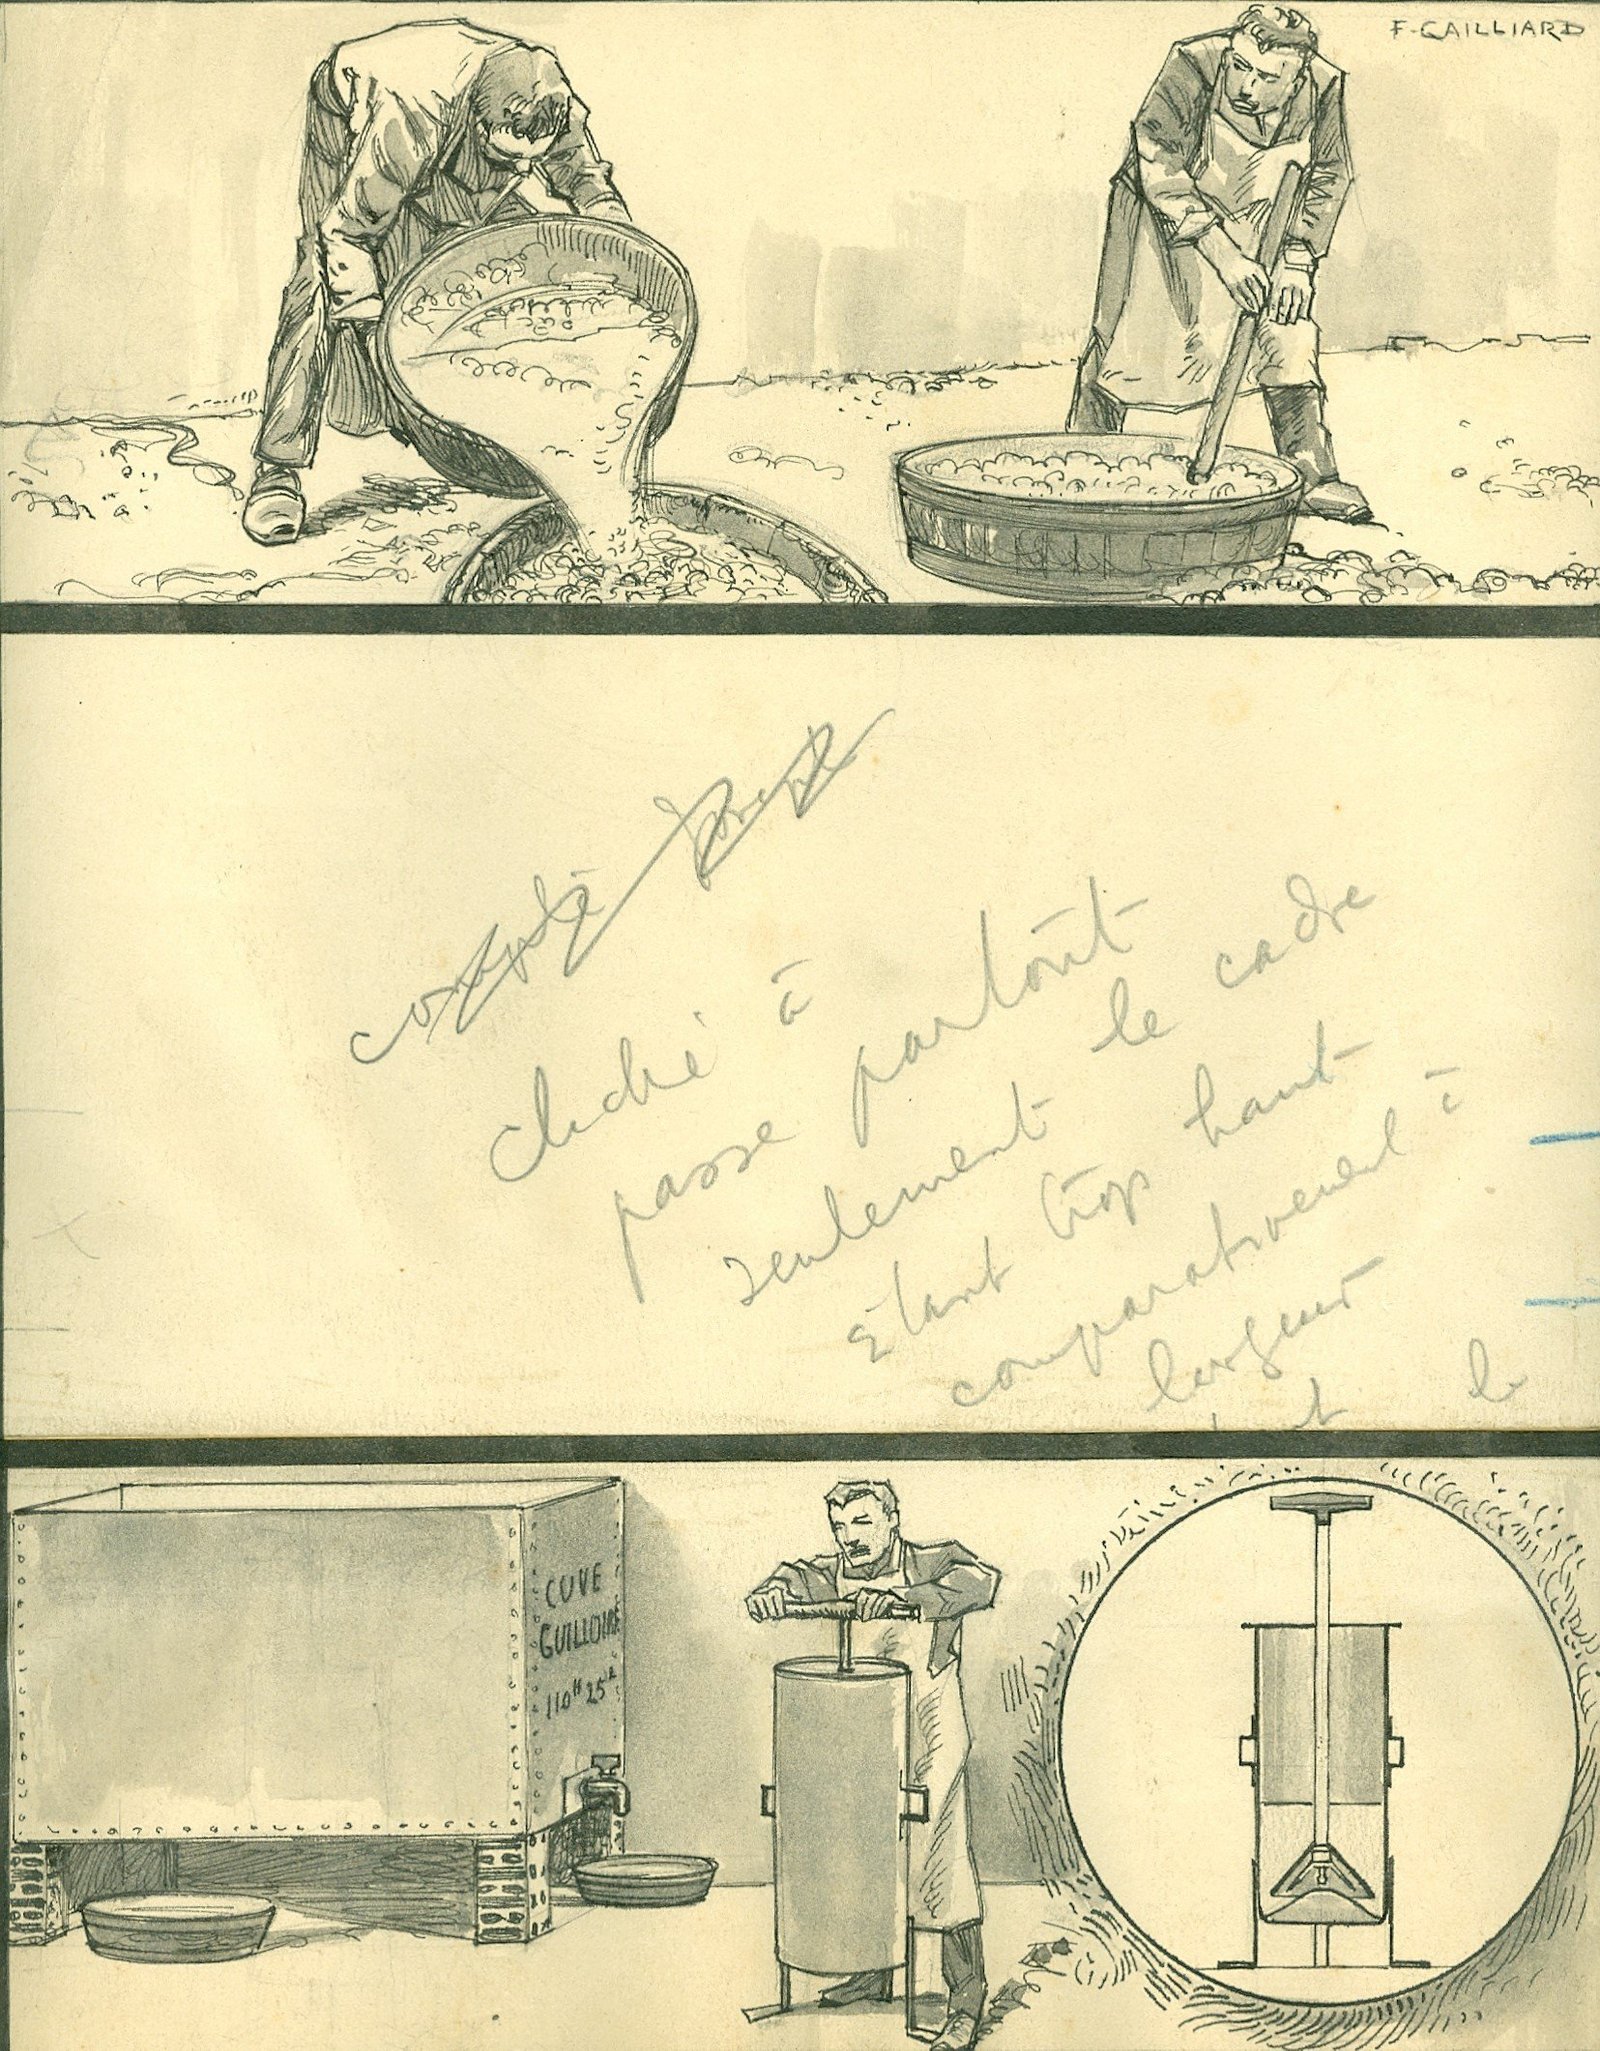 F-GAILLIARD
cliché à
passe partout
seulement le cadre
étant trop haut
comparativement à
largeur
CUVE
GUILLOUME
110H 25